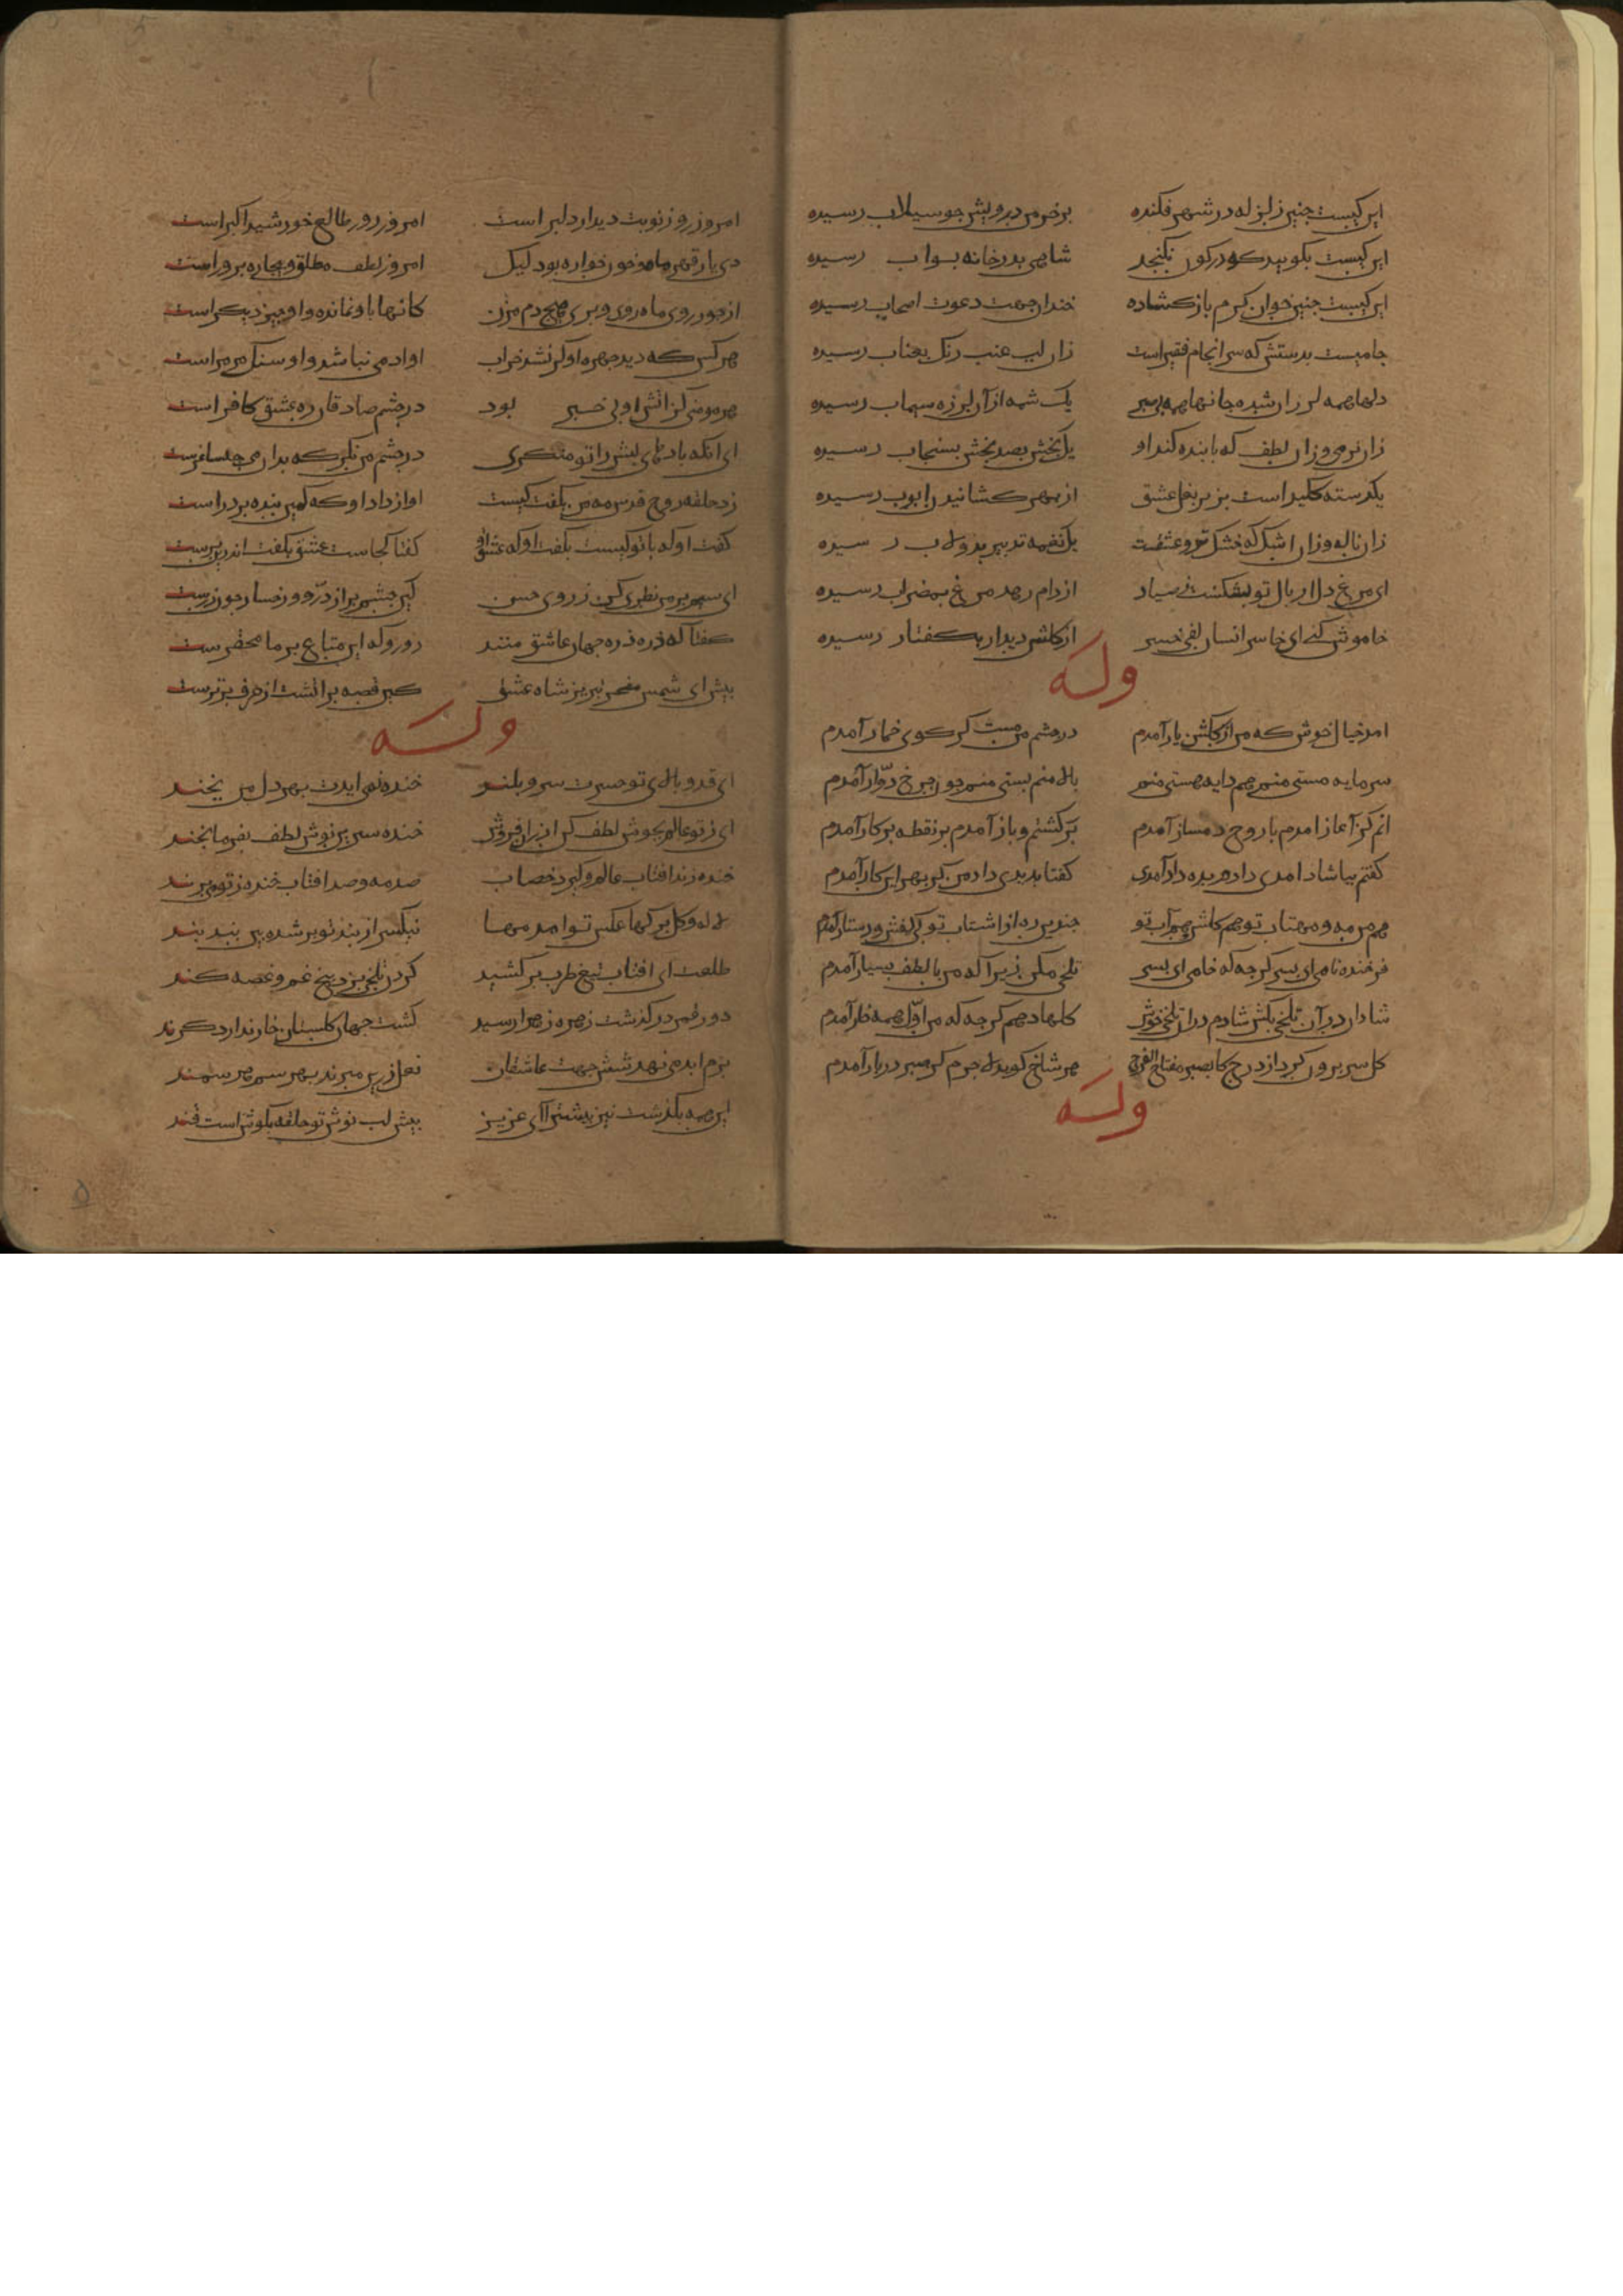 این کیست چنین زلزله در شهر فکنده برخرمن درویش چو سیلاب رسیده
این کیست بگویید که در کون نگنجد شاهی بدر خانه بواب رسیده
این کیست چنین خوان کرم باز کشاده خندان جهت دعوت اصحاب رسیده
جامیست بدستش که سرانجام فقیر است زان لب عنب رنک بعناب رسیده
دلها همه لرزان شده جانها همه بی صبر یک شمه از آن لرزه سیماب رسیده
زان نرمی و زان لطف که با بنده کند او یک بخش بصد بخش بسنجاب رسیده
یکدسته کلید است بزیر بغل عشق از بهر کشانیدن ابوب رسیده
زان ناله و زان اشک که خشک و تر عشقست یک نغمه تدبیر بدولاب رسیده
ای مرغ دل ار بال تو بشکست ز صیاد از دام رهد مرغ بمضراب رسیده
خاموش کنم ای خاسر انسان لفی خسر از کلشن دیدار بکفتار رسیده
وله
آمد خیال خوش که من از کلشن یار آمدم در چشم مست من نکر کز کوی خمار آمدم
سرمایه مستی منم هم دایه هستی منم بالا منم پستی منم چون چرخ دوار آمدم
انم کز آغاز امدم با روح دمساز آمدم برکشتم و باز آمدم بر نقطه برکار آمدم
کفتم بیا شاد امدی دادم بده داد آمدی کفتا بدیدی داد من کز بهر این کار آمدم
هم من مه و مهتاب تو هم کلشن و هم آب تو چندین ره از اشتاب تو بی کفش و دستار آمدم
فرخنده نامی ای پسر کرچه که خامی ای پسر تلخی مکن زیرا که من با لطف بسیار آمدم
شادان درآ تلخی بکش شادم در آن تلخی خوش کلها دهم کرچه که من اول همه خار آمدم
کل سر برون کرد از درج کالصبر مفتاح الفرج هر شاخ کوید لا حرج کز صبر در بار آمدم
وله
امروز روز نوبت دیدار دلبر است امروز روز طالع خورشید اکبر است
دی یار قهرمان و خون خواره بود لیک امروز لطف مطلق و بیچاره پرور است
از حور و روی ماه و روح و پری هیچ دم مزن کانها باو نمانده و او چیز دیکر است
هر کس که دید چهره او کر نشد خراب او ادمی نباشد و او سنک مرمر است
هر مومنی کز آتش او بی خبر بود در چشم صادقان ره عشق کافر است
ای آنکه باده‌های لبش را تو منکری در چشم من نکر که پر از می چو ساغرست
زد حلقه روح قدس مه من بکفت کیست اواز داد او که کمین بنده بر در است
کفت او که با تو کیست بکفت او که عشق تو کفتا کجاست عشق بکفت اندرین برست
ای سیمبر بمن نظری کن ز روی حسن کین چشم پر از در و رخسار چون زرست
کفتا که ذره ذره جهان عاشق منند رو رو که این متاع بر ما محقرست
پیش ای شمس مفخر تبریز شاه عشق کین قصه پر آتشت از حرف برترست
وله
ای قد و بالای تو حسرت سرو بلند خنده نمی ایدت بهر دل من بخند
ای ز تو عالم بجوش لطف کن ارزان فروش خنده شیرین نوش لطف بفرما بخند
خنده زند افتاب عالم و کیرد خضاب صد مه و صد افتاب خنده ز تو می برند
لاله و کل برکها عکس تو امد مها نیکسر از بند تو پر شده پی بند بند
طلعت ای افتاب تیغ طرب برکشید کردن تلخی بزد بیخ غم و غصه کند
دور قمر درکذشت زهره زهرا رسید کشت جهان کلستان خار ندارد کزند
بزم ابد می نهد شش جهت عاشقان نعل زرین میزند بهر سم هر سمند
این همه بکذشت نیز پیشتر آ ای عزیز پیش لب نوش تو حلقه بکوش است قند
۵